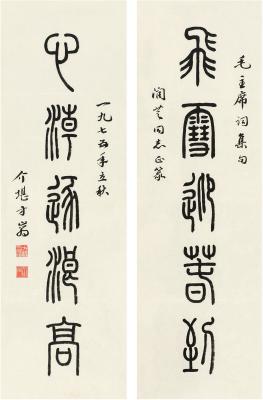 毛主席詞集句
飛雪迎春到
同志正篆
心潮逐浪高
一九七五年立秋
介堪方